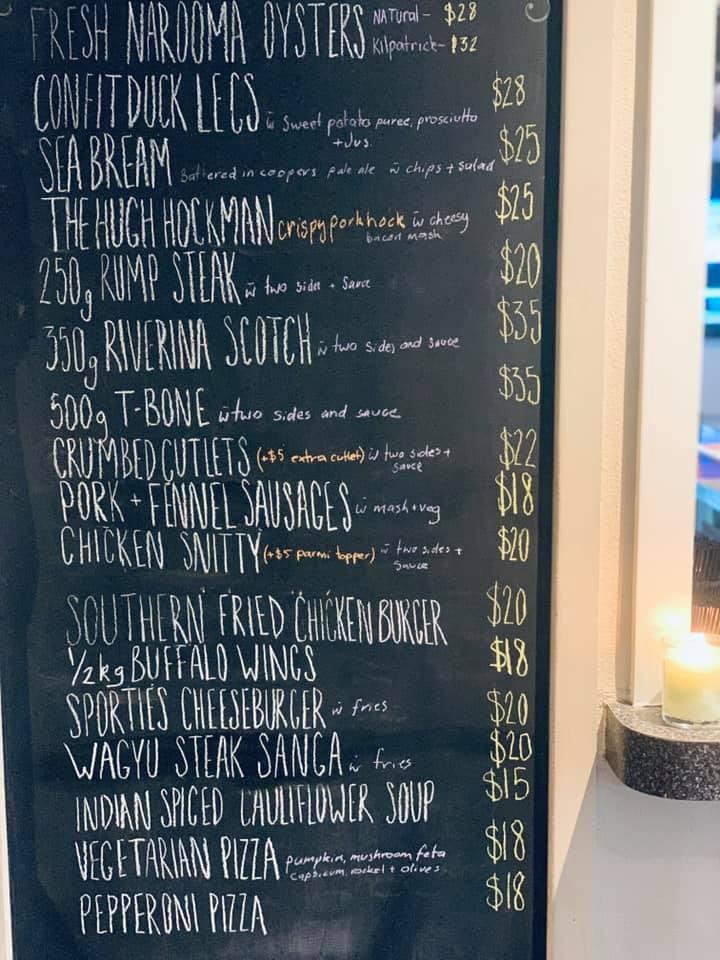 FRESH NAROOMA OYSTERS NATURAL- $28
Kilpatrick- $32
CONFIT DUCK LEGS w̄ sweet potato puree, prosciutto $28
+ Jus.
SEA BREAM Battered in coopers pale ale w̄ chips + salad $25
THE HUGH HOCKMAN crispy pork hock w̄ cheesy $25
bacon mash
250g RUMP STEAK w̄ two sides + sauce $20
350g RIVERINA SCOTCH w̄ two sides and sauce $35
500g T-BONE w̄ two sides and sauce $35
CRUMBED CUTLETS (+$5 extra cutlet) w̄ two sides + $22
sauce
PORK + FENNEL SAUSAGES w̄ mash + veg $18
CHICKEN SNITTY (+$5 parmi topper) w̄ two sides + $20
sauce
SOUTHERN FRIED CHICKEN BURGER $20
1/2kg BUFFALO WINGS $18
SPORTIES CHEESEBURGER w̄ fries $20
WAGYU STEAK SANGA w̄ fries $20
INDIAN SPICED CAULIFLOWER SOUP $15
VEGETARIAN PIZZA pumpkin, mushroom feta $18
capsicum, rocket + olives
PEPPERONI PIZZA $18